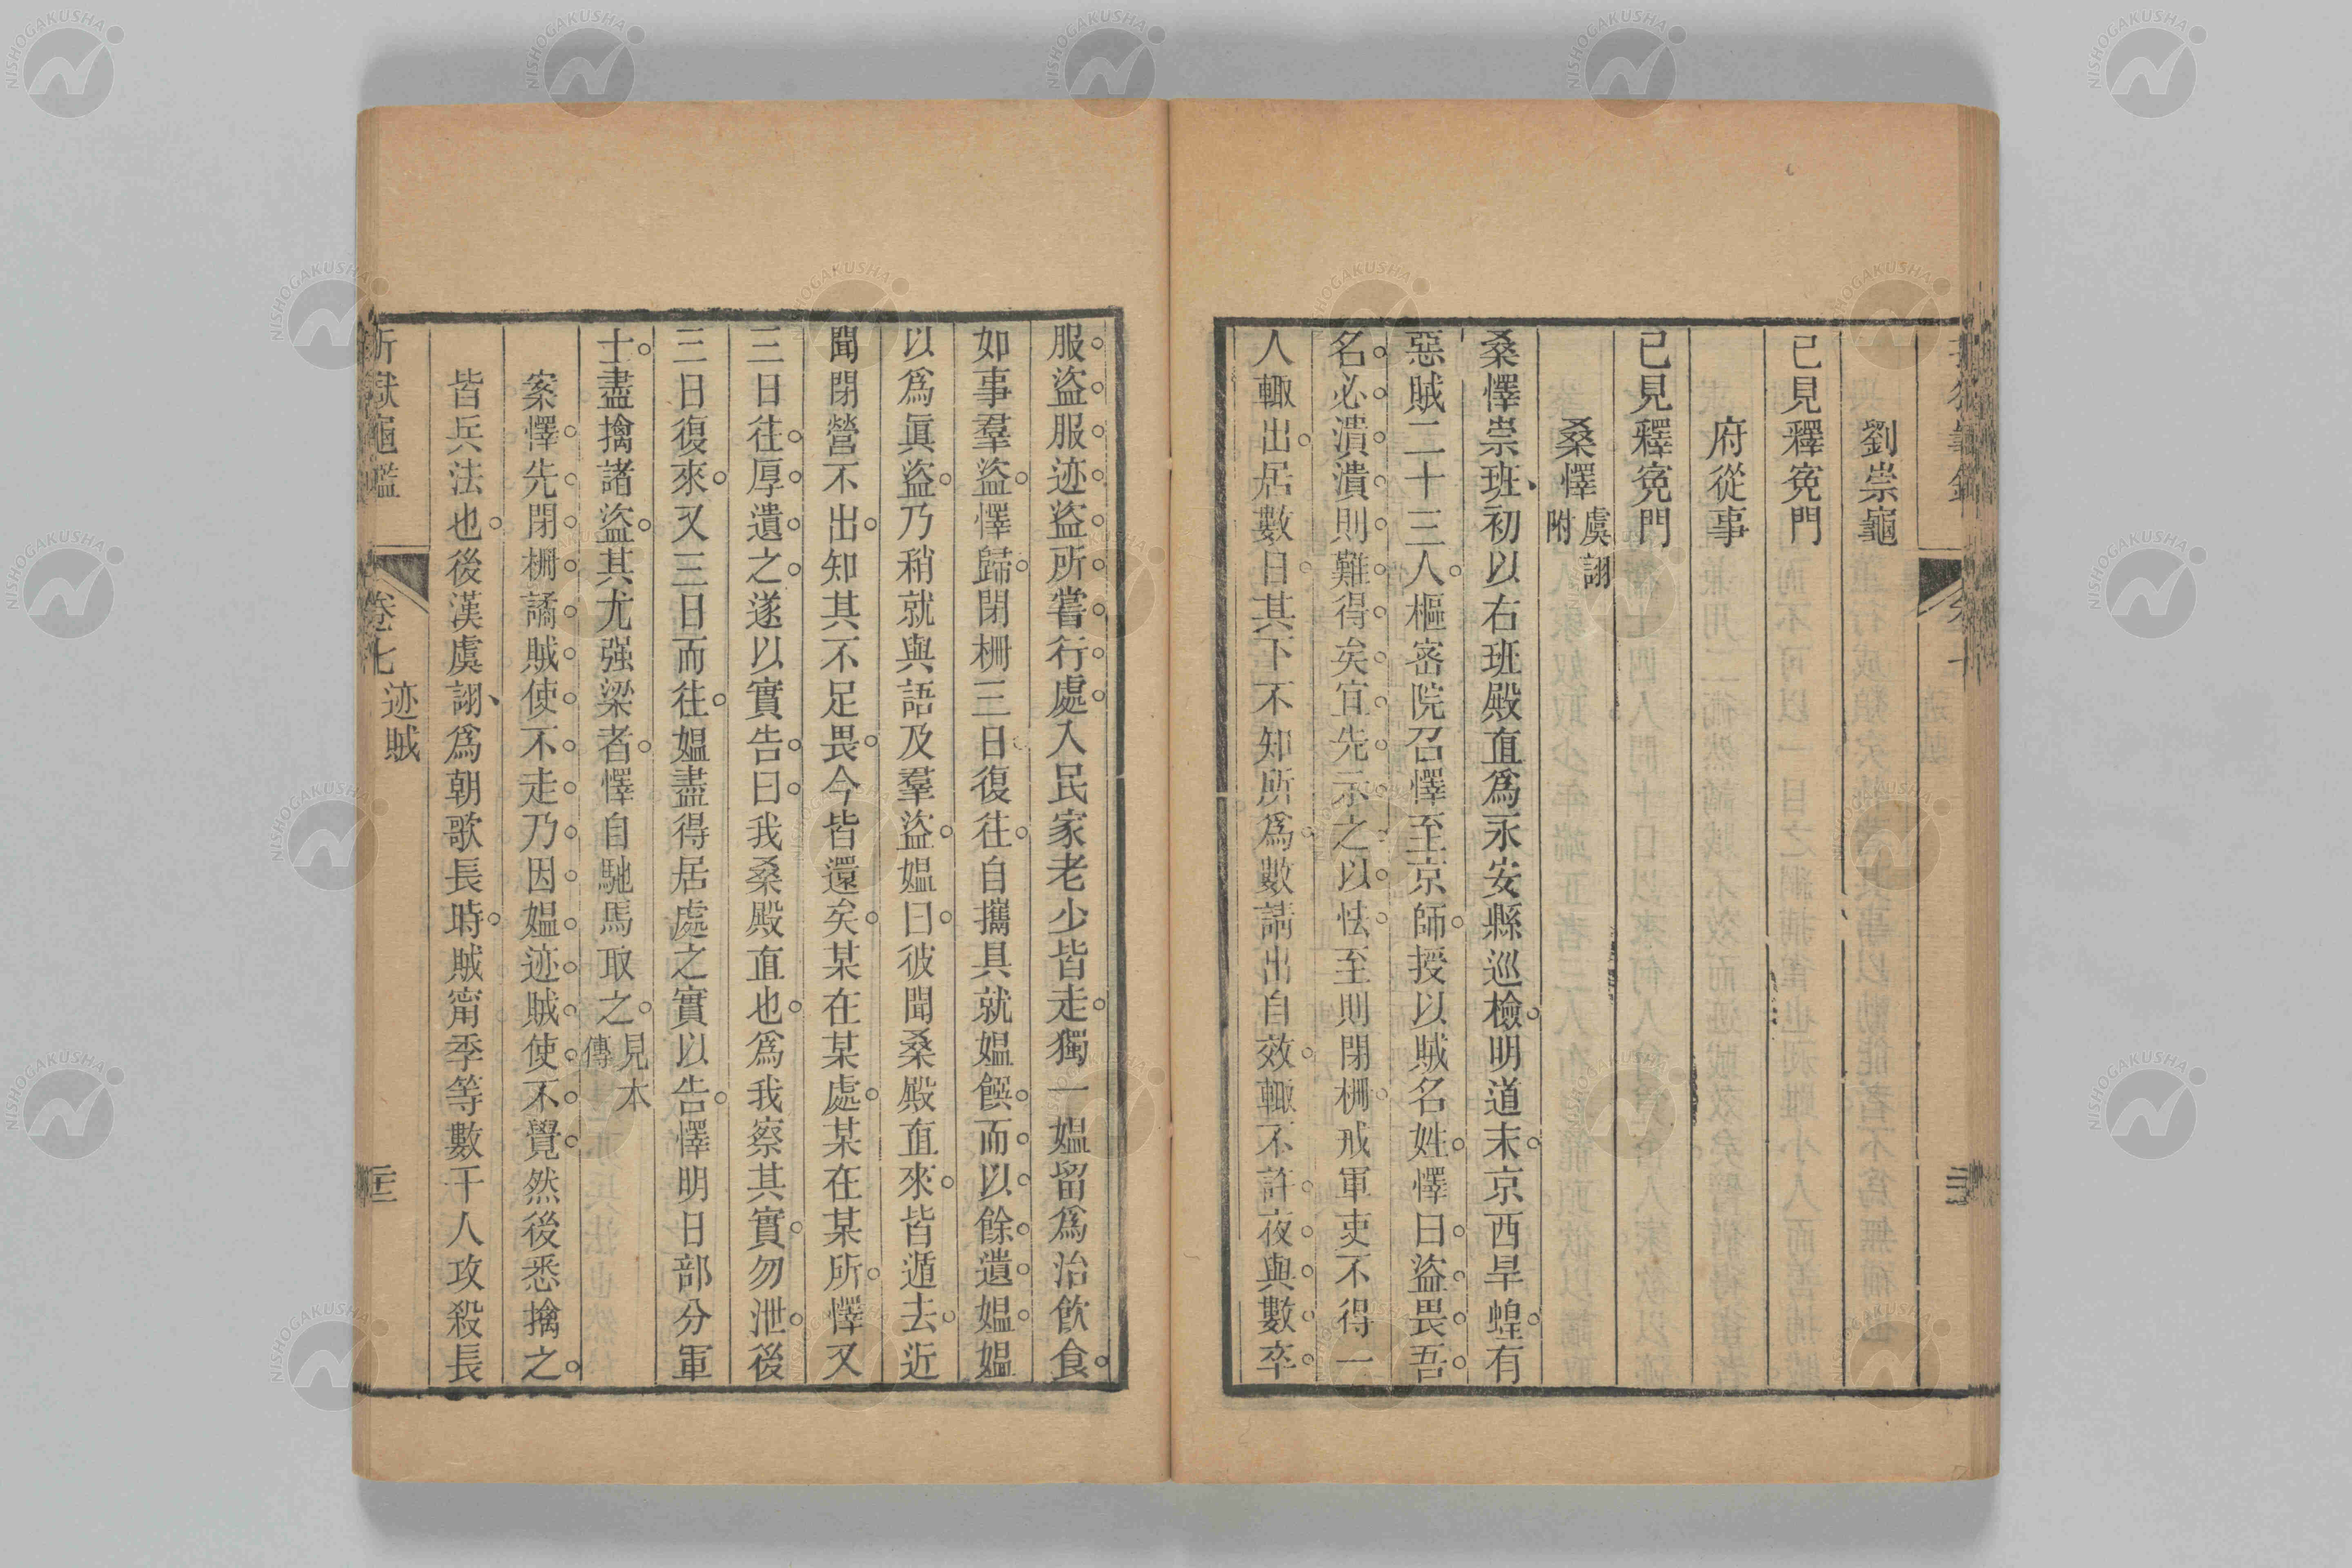 劉崇龜
已見釋寃門
府從事
已見釋寃門
桑懌虞詡附
桑懌崇班初以右班殿直爲永安縣巡檢。明道末。京西旱蝗。有
惡賊二十三人。樞密院召懌至京師。授以賊名姓。懌曰。盜。畏。吾。
名。必。潰。潰。則。難。得。矣。宜。先。示。之。以。怯。至則閉柵。戒軍吏不得一
人輙出。居數日。其下不知所爲。數請出自效。輙不許。夜。與。數。卒。
服。盜。服。迹。盜。所。嘗。行。處。入民家老少皆走。獨一媼留爲治飲食。
如事羣盜。懌歸。閉柵三日。復往。自攜具就媼饌。而。以。餘。遺。媼。媼
以爲眞盜。乃稍就與語及羣盜。媼曰。彼聞桑殿直來。皆遁去。近
聞閉營不出。知其不足畏。今皆還矣。某在某處。某在某所。懌又
三日往。厚。遺。之。遂以實告。曰。我桑殿直也。爲我察其實。勿泄。後
三日復來。又三日而往。媼盡得居處之實以告。懌明日部分軍
士。盡擒諸盜。其尤强梁者。懌自馳馬取之。見本傳
案懌。先。閉。柵。譎。賊。使。不。走。乃。因。媼。迹。賊。使。不。覺。然後悉擒之。
皆兵法也。後漢虞詡、爲朝歌長。時賊甯季等數千人攻殺長
折獄龜鑑
卷七
迹賊